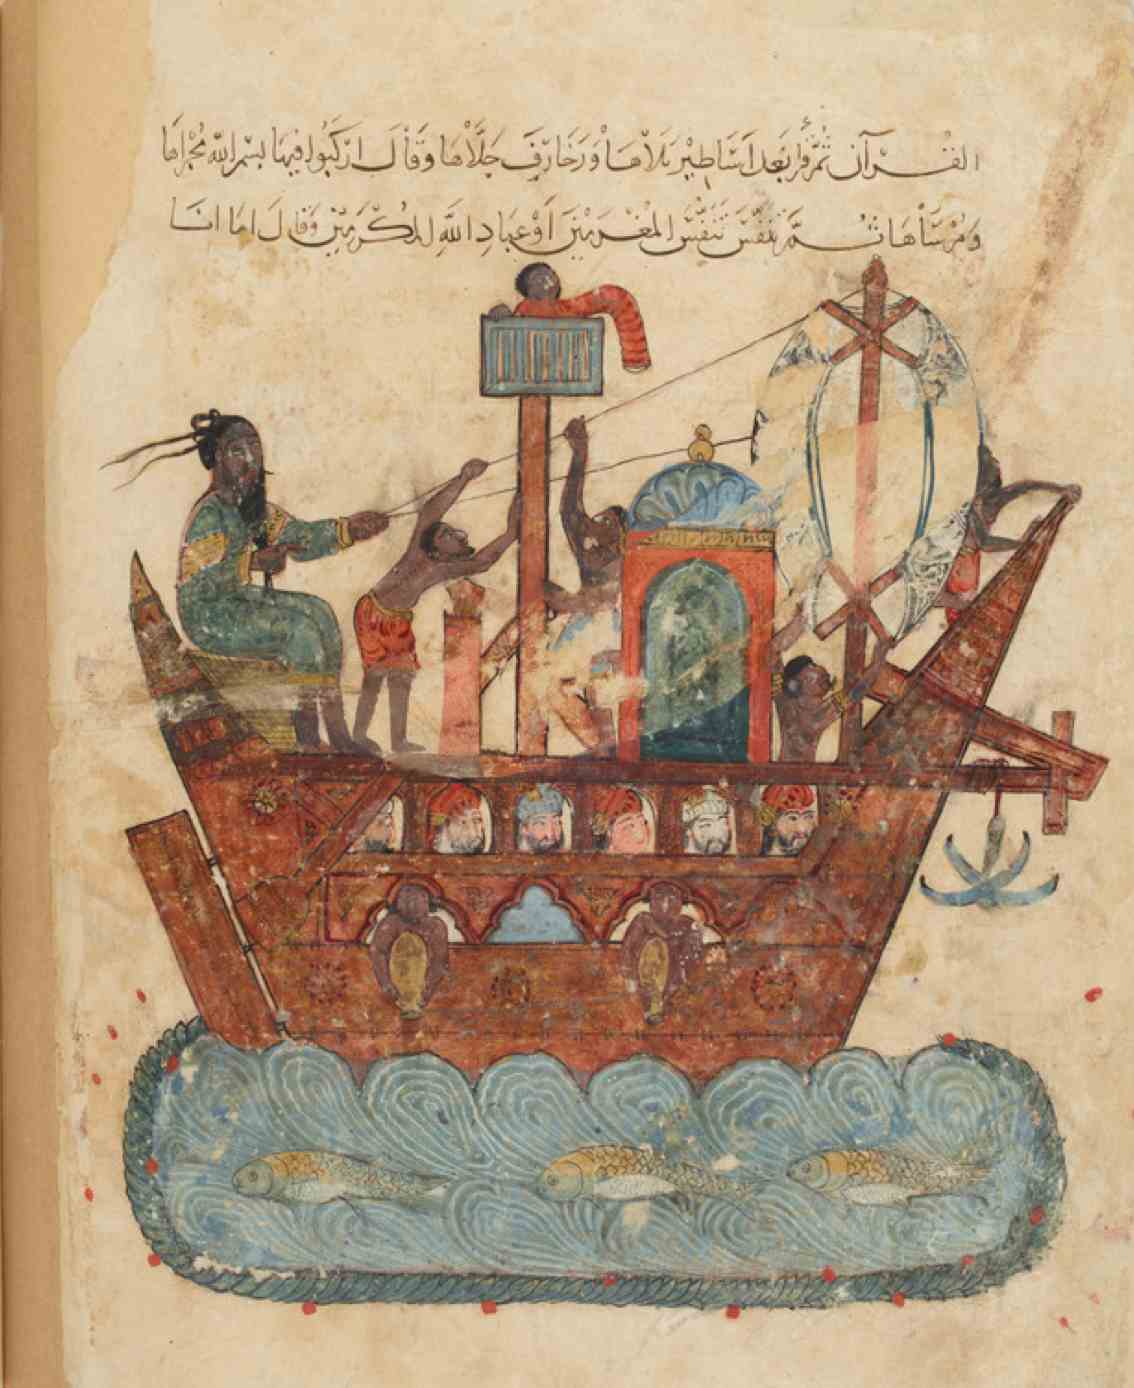 القُرْآن ثُمَّ قرأ بَعْدَ اَسَاطِيْر تَلاَهَا وَزَخَارِفَ جَلَّاهَا وَقَالَ ارْكَبُوا فِيهَا بِسْمِ اللّٰه مُجْراهَا
وَمُرْسَاهَا ثُمَّ تَنَفَّسَ تَنَفُّسَ المُغْرَمِيْنَ اَوْ عِبَادِ اللّٰهِ المُكْرَمِيْنَ وَقَالَ اما انَا